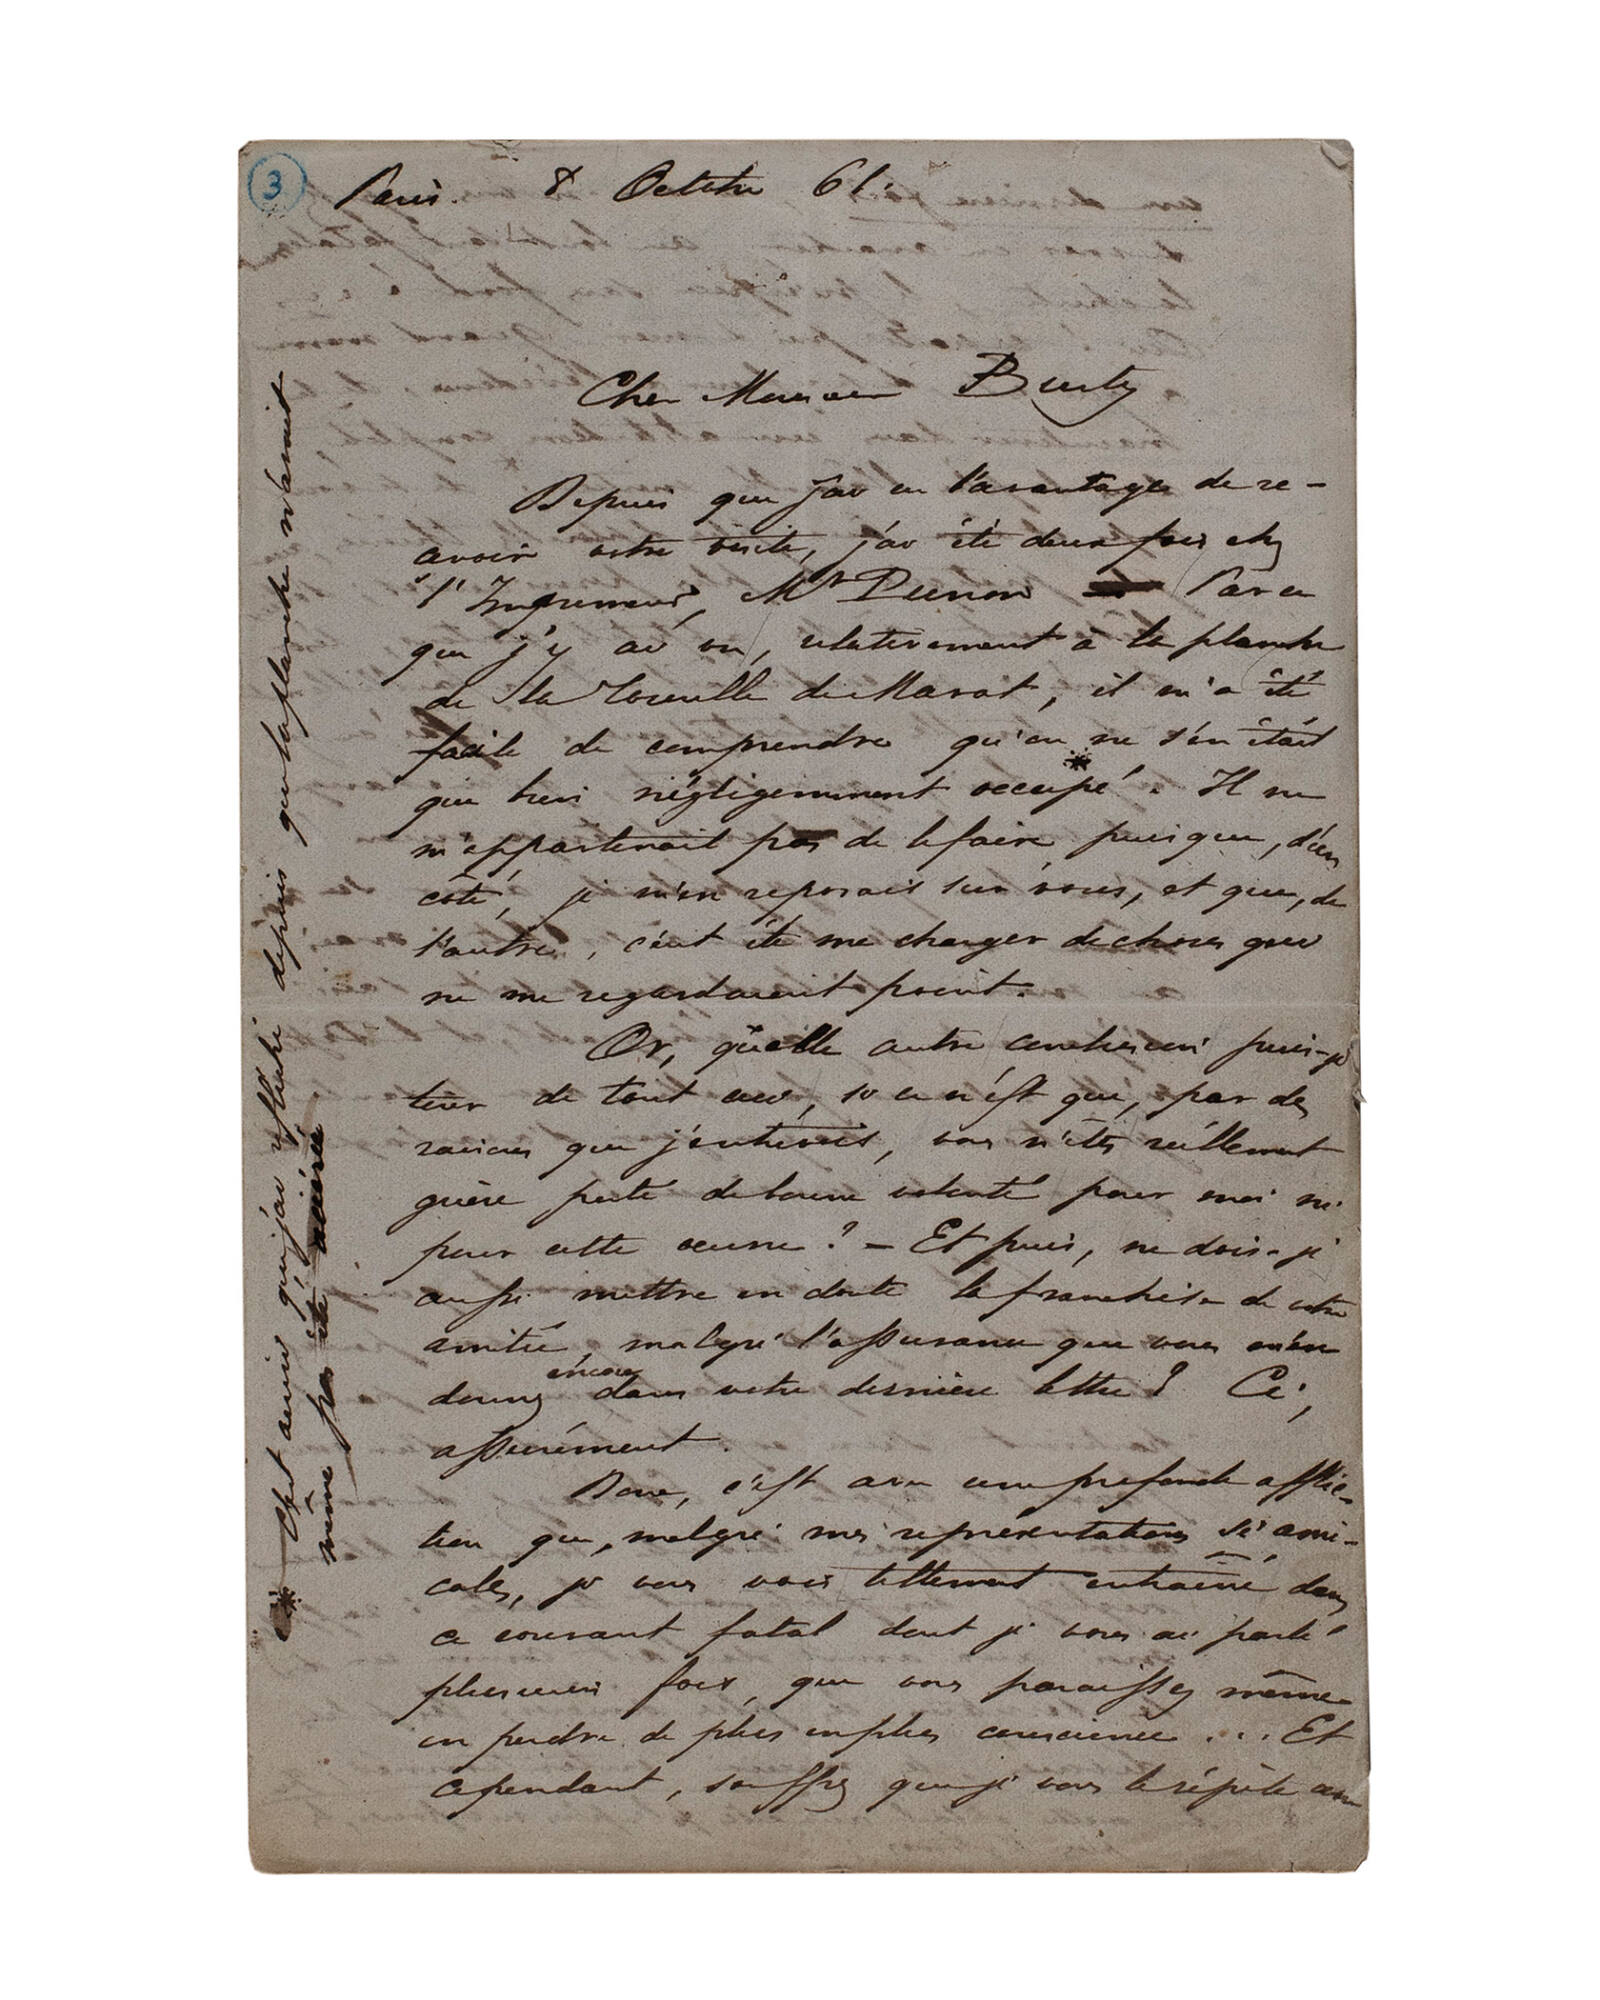 3
Paris. 8 Octobre 61.
Cher Monsieur Burty
Depuis que j'ai eu l'avantage de re-
avoir votre visite, j'ai été deux fois chez
l'Imprimeur, Mr Pierron Par ce
que j'y ai vu, relativement à la planche
de la Tourelle de Marat, il m'a été
facile de comprendre qu'on ne s'en était
que bien négligemment occupé *. Il ne
m'appartenait pas de le faire puisque, d'un
côté, je m'en reposais sur vous, et que, de
l'autre, c'eut été me charger de choses qui
ne me regardaient point.
Or, quelle autre conclusion puis-je
tirer de tout ceci, si ce n'est que, par des
raisons que j'entrevois, vous n'êtes réellement
guère porté de bonne volonté pour moi ni
pour cette oeuvre ? – Et puis, ne dois-je
aussi mettre en doute la franchise de votre
amitié, malgré l'assurance que vous m'en
donnez encore dans votre dernière lettre ?
assurément.
Donc, c'est avec une profonde afflic-
tion que, malgré mes représentations si ami-
cales, je vous vois tellement entraîné dans
ce courant fatal dont je vous ai parlé
plusieurs fois, que vous paraissez même
en perdre de plus en plus conscience ... Et
cependant, souffrez que je vous le répète
* C'est ainsi que j'ai depuis que la planche n'avait
même pas été aciérée